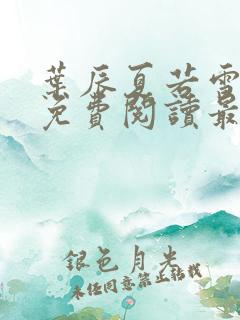 葉辰夏若雪
免費閱讀最
銀色月光
未經同意禁止轉載